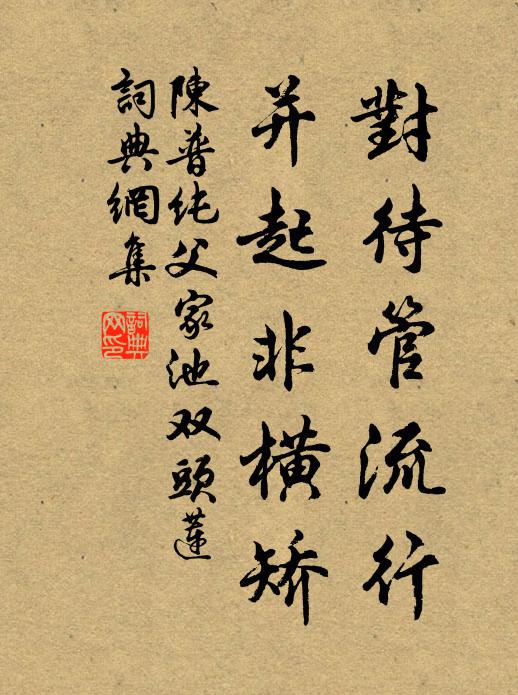 對待管流行
并起非橫矫
陳普纯父家池双頭蓮
詞典網集
詞典網印